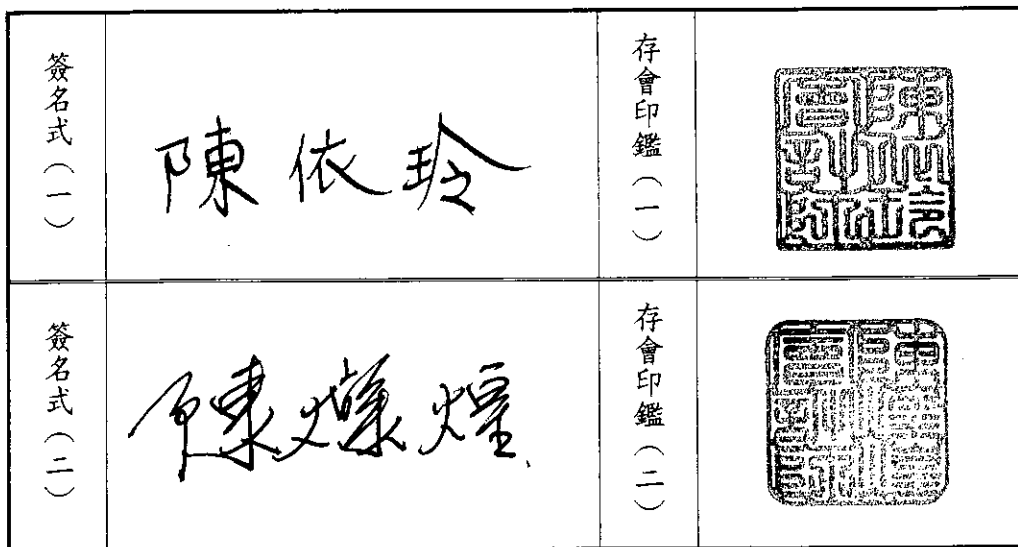 簽名式（一）
陳依玲
存會印鑑（一）
簽名式（二）
陳燦煌
存會印鑑（二）